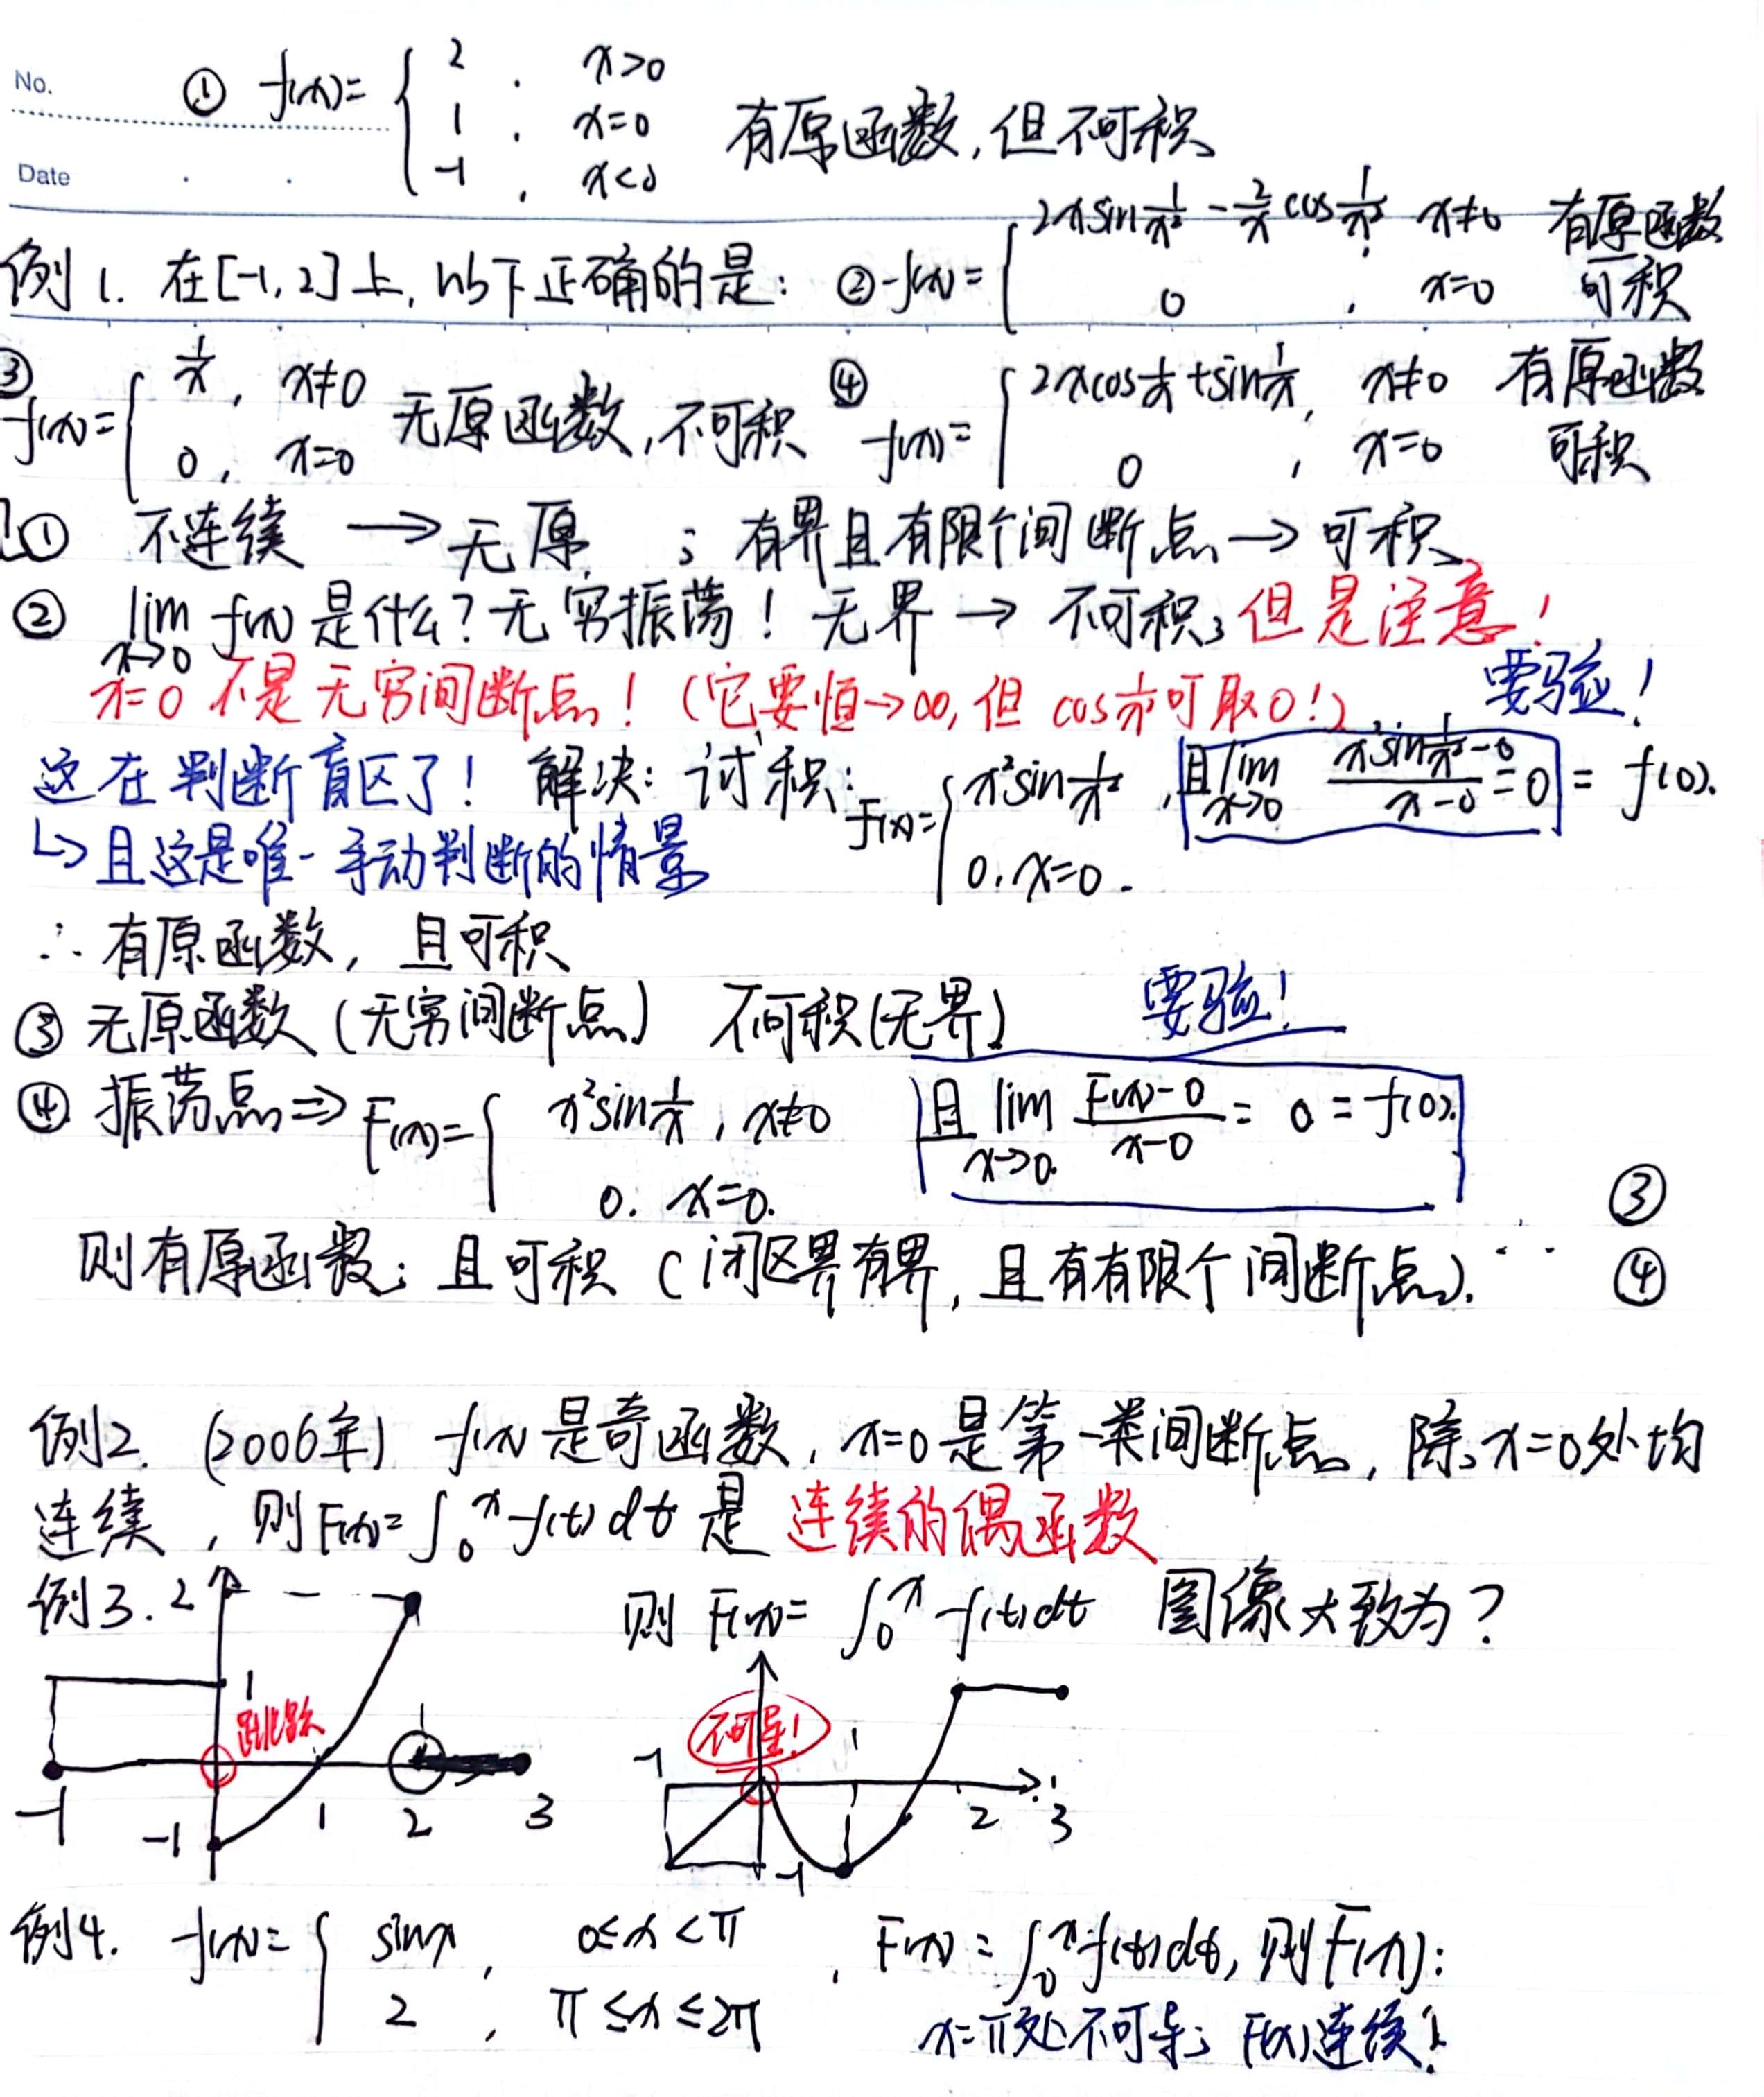 No.
Date
① f(x)= { 2 , x>0
1 , x=0
-1 , x<0
有原函数,但不可积
例1. 在[-1,2]上,以下正确的是: ② f(x)= { 2xsin1/x² - 2/x cos1/x² , x≠0
0 , x=0
有原函数
可积
③ f(x)= { 1/x , x≠0
0 , x=0
无原函数,不可积
④ f(x)= { 2xcos1/x + sin1/x , x≠0
0 , x=0
有原函数
可积
① 不连续 → 无原 ; 有界且有限个间断点 → 可积
② lim x→0 f(x) 是什么?无穷振荡! 无界 → 不可积; 但是注意!
x=0 不是无穷间断点!(它要恒→∞,但 cos1/x²可取0!) 要验!
这在判断盲区了! 解决: 讨积: F(x)= { x²sin1/x² , 且lim x→0 (x²sin1/x²-0)/(x-0) =0 = f(0).
0, x=0.
↳ 且这是唯一手动判断的情景
∴ 有原函数, 且可积
③ 无原函数 (无穷间断点) 不可积(无界) 要验!
④ 振荡点⇒ F(x)= { x²sin1/x , x≠0
0. x=0.
且 lim x→0 (F(x)-0)/(x-0) = 0 = f(0).
③
则有原函数; 且可积 (闭区界有界, 且有有限个间断点).
④
例2. (2006年) f(x)是奇函数, x=0是第一类间断点, 除x=0外均
连续 , 则F(x)= ∫₀ˣ f(t) dt 是 连续的偶函数
例3. 则 F(x)= ∫₀ˣ f(t)dt 图像大致为?
2
1
跳跃
1
-1
-1
1
2
3
不可导!
-1
1
2
3
-1
例4. f(x)= { sinx , 0≤x<π
2 , π≤x≤2π
, F(x) = ∫₀ˣ f(t)dt, 则F(x):
x=π处不可导; F(x)连续!